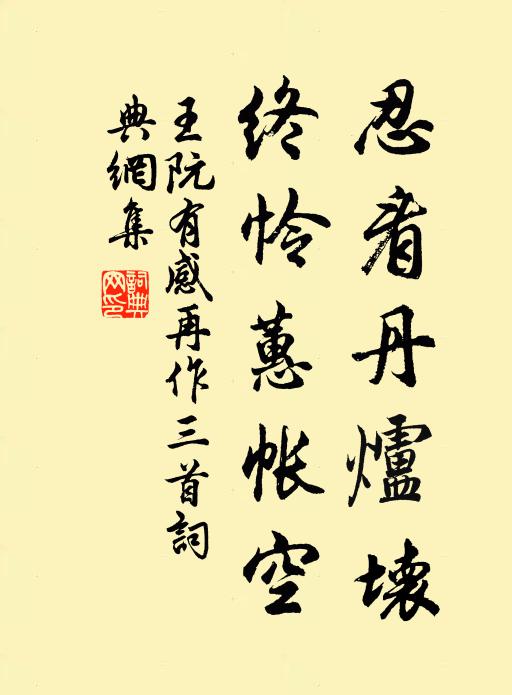 忍看丹爐壞
終憐蕙帳空
王阮有感再作三首詞
典網集
詞典網印